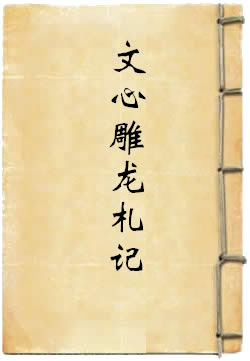 文心雕龙札记